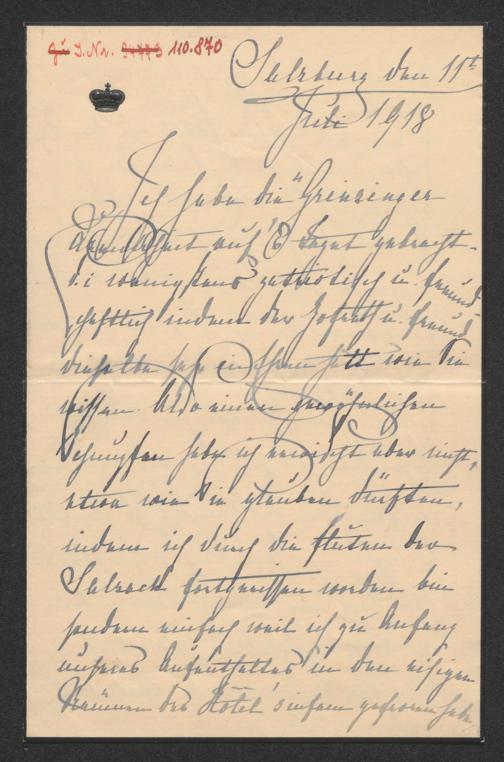 zu I.Nr. 110.870
Salzburg den 11ten
Juli 1918
Ich habe die "Grinzinger
auf's gebracht
d.i. wenigstens patriotisch u. freund
schaftlich indem der Hofrath u. Freund
dieselbe sehr wie Sie
wissen. Also einen gewöhnlichen
Schnupfen habe ich erwischt aber nicht
etwa wie Sie glauben dürften,
indem ich durch die Fluten der
Salzach fortgerissen worden bin
sondern einfach weil ich zu Anfang
unseres Aufenthaltes in den eisigen
Räumen des Hôtel's infam gefroren habe.